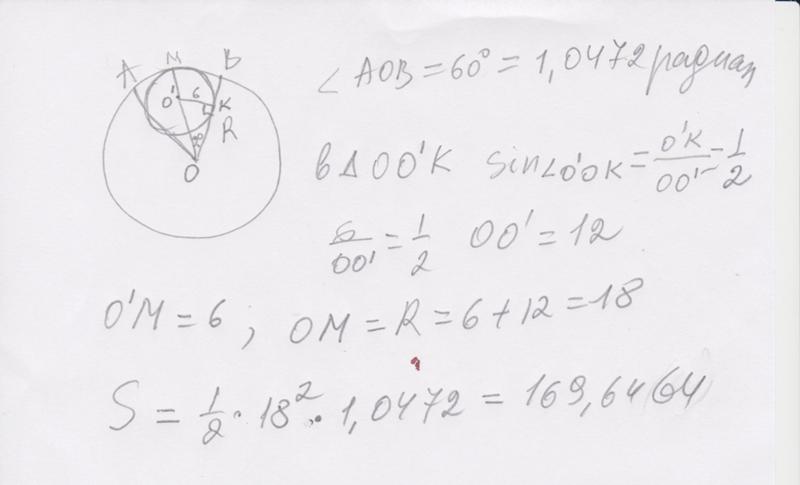 A M B
O' 6 K
R
30°
O
∠ AOB = 60° = 1,0472 радиан
в Δ OO'K sin∠O'OK = O'K/OO' = 1/2
6/OO' = 1/2 OO' = 12
O'M = 6 ; OM = R = 6 + 12 = 18
S = 1/2 · 18² · 1,0472 = 169,6464